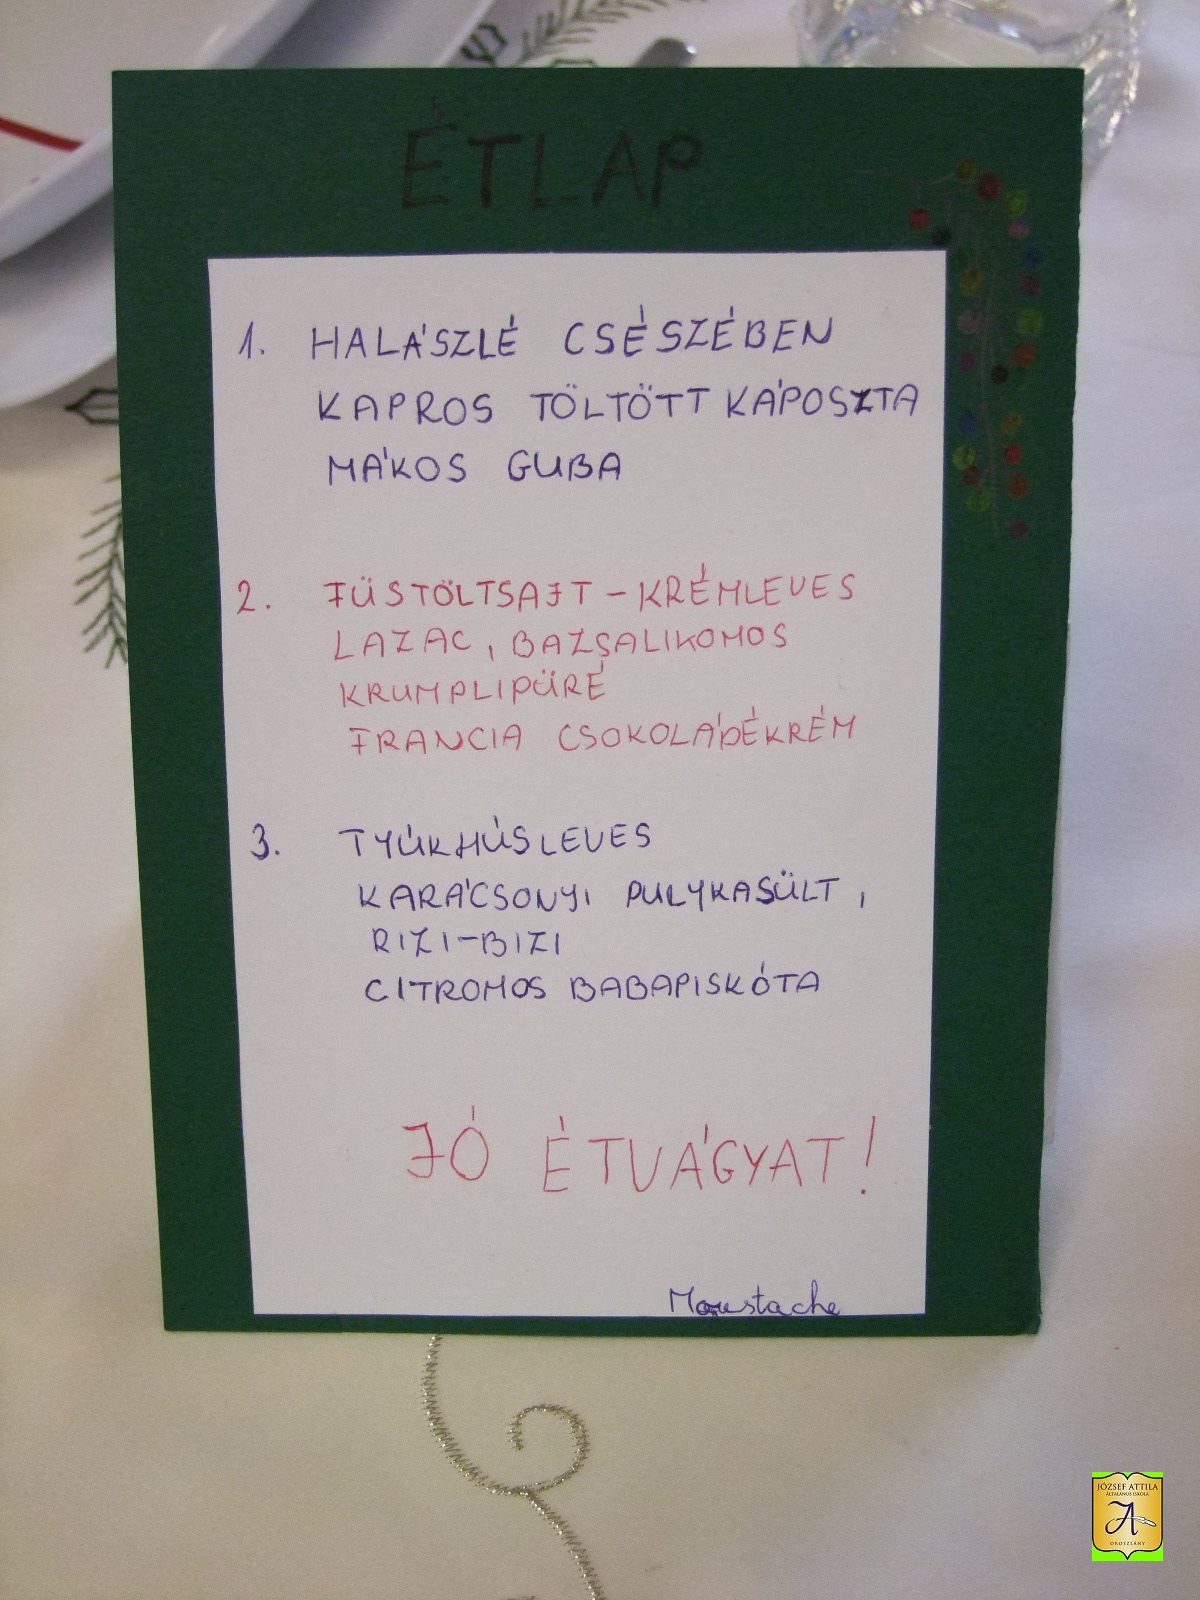 ÉTLAP
1. HALÁSZLÉ CSÉSZÉBEN
KAPROS TÖLTÖTT KÁPOSZTA
MÁKOS GUBA
2. FÜSTÖLTSAJT - KRÉMLEVES
LAZAC, BAZSALIKOMOS
KRUMPLIPÜRÉ
FRANCIA CSOKOLÁDÉKRÉM
3. TYÚKHÚSLEVES
KARÁCSONYI PULYKASÜLT,
RIZI-BIZI
CITROMOS BABAPISKÓTA
JÓ ÉTVÁGYAT!
Moustache
JÓZSEF ATTILA
ÁLTALÁNOS ISKOLA
A
OROSZLÁNY